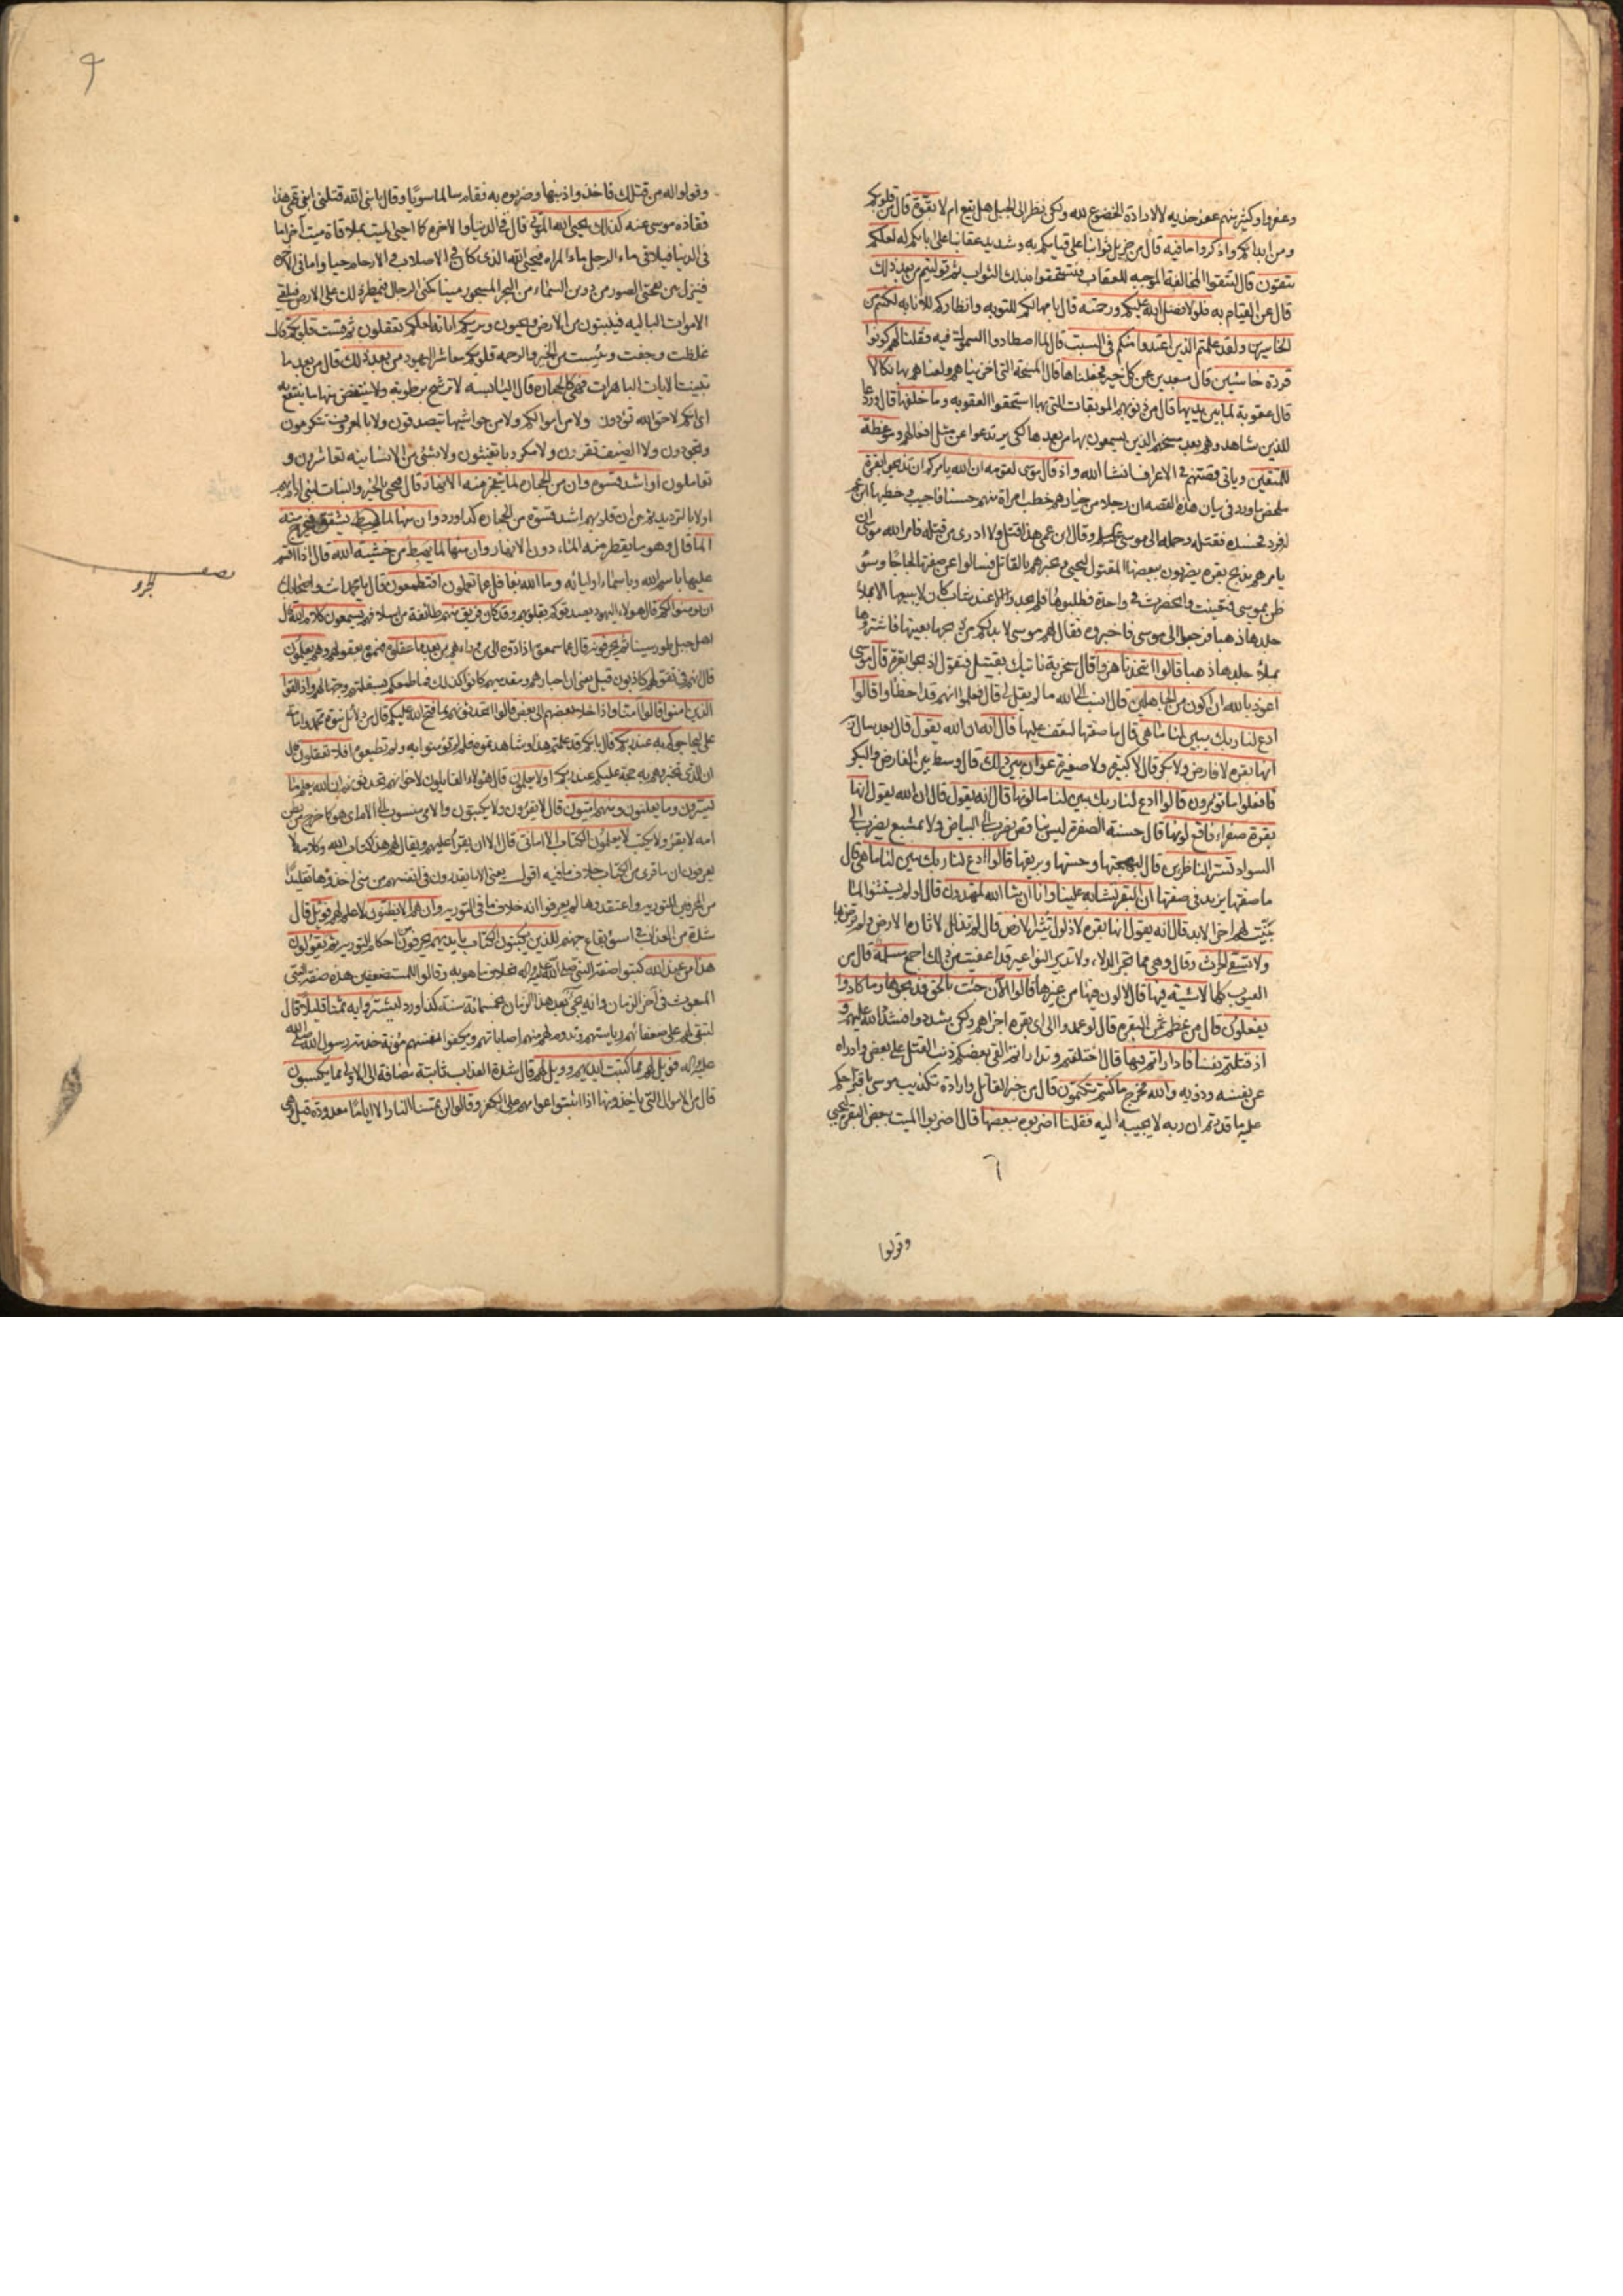 وعفروا وكثير منهم عفر خديه لا لارادة الخضوع لله ولكن نظر الى الجبل هل يقع ام لا بقوة قال من قلوبكم
ومن ابدانكم واذكروا ما فيه قال من جزيل ثوابنا على قيامكم به وشديد عقابنا على ابائكم له لعلكم
تتقون قال لتتقوا المخالفة الموجبه للعقاب فتستحقوا بذلك الثواب ثم توليتم من بعد ذلك
قال عن القيام به فلولا فضل الله عليكم ورحمته قال بامهالكم للتوبه وانظاركم للانابه لكنتم من
الخاسرين ولقد علمتم الذين اعتدوا منكم في السبت قال لما اصطادوا السموك فيه فقلنا لهم كونوا
قردة خاسئين قال مبعدين عن كل خير فجعلناها قال المسخة التي اخزيناهم ولعناهم بها نكالا
قال عقوبة لما بين يديها قال من ذنوبهم الموبقات التي بها استحقوا العقوبه وما خلفها قال وردعا
للذين شاهدوهم بعد مسخهم الذين يسمعون بها من بعدها لكي يرتدعوا عن مثل افعالهم وموعظة
للمتقين وياتي قصتهم في الاعراف انشا الله واذ قال موسى لقومه ان الله يامركم ان تذبحوا بقرة
ملخص ما ورد في بيان هذه القصه ان رجلا من خيارهم خطب امراة منهم حسنا فاجيب وخطبها ابن عم
له فرد فحسده فقتله وحمله الى موسى وقال ابن عمي هذا قتل ولا ادري من قتله فامر الله موسى ان
يامرهم بذبح بقره يضربون ببعضها المقتول ليحيي ويخبرهم بالقاتل فسالوا عن صفتها لجاجا وسوء
ظن بموسى فتعينت وانحصرت في واحدة فطلبوها فلم يجدوا الا عند شاب كان لا يبيعها الا بملا
جلدها ذهبا فرجعوا الى موسى فاخبروه فقال لهم موسى لا بد لكم من ذبحها بعينها فاشتروها
بملأ جلدها ذهبا قالوا اتتخذنا هزوا قال سخرية ناتيك بقتيل فتقول اذبحوا بقرة قال موسى
اعوذ بالله ان اكون من الجاهلين قال انسب الى الله ما لم يقل لي قال فعلموا انهم قد اخطأوا قالوا
ادع لنا ربك يبين لنا ما هي قال ما صفتها لنقف عليها قال انه ان الله يقول قال بعد سال ربه
انها بقره لا فارض ولا بكر قال لا كبيره ولا صغيرة عوان بين ذلك قال وسط بين الفارض والبكر
فافعلوا ما تؤمرون قالوا ادع لنا ربك يبين لنا ما لونها قال انه يقول قال ان الله يقول انها
بقرة صفراء فاقع لونها قال حسنة الصفرة ليس بناقص يضرب الى البياض ولا بمشبع يضرب الى
السواد تسر الناظرين قال لبهجتها وحسنها وبريقها قالوا ادع لنا ربك يبين لنا ما هي قال
ما صفتها يزيد في صفتها ان البقر تشابه علينا وانا ان شا الله لمهتدون قال لو لم يستثنوا لما
بينت لهم اخر الابد قال انه يقول انها بقره لا ذلول تثير الارض قال لم تذلل لاثارة الارض ولم ترض بها
ولا تسقي الحرث قال وهي مما تجر الدلاء ولا تدير النواعير قد اعفيت من ذلك اجمع مسلمة قال من
العيوب كلها لا شية فيها قال لا لون فيها من غيرها قالوا الآن جئت بالحق فذبحوها وما كادوا
يفعلون قال من عظم ثمن البقره قال لو عمدوا الى اي بقره اجزاهم ولكن شددوا فشدد الله عليهم و
اذ قتلتم نفسا فاداراتم فيها قال اختلفتم وتداراتم القى بعضكم ذنب القتل على بعض وادراه
عن نفسه وذويه والله مخرج ما كنتم تكتمون قال من خبر القاتل وارادة تكذيب موسى باقتراحكم
عليه ما قدرتم ان ربه لا يجيبه اليه فقلنا اضربوه ببعضها قال اضربوا الميت ببعض البقرة ليحيى
٦
وقولوا
٩
وقولوا له من قتلك فاخذوا ذنبها وضربوه به فقام سالما سويا وقال يا نبي الله قتلني ابن عمي هذا
فقاده موسى عنه كذلك يحيي الله الموتى قال في الدنيا والاخره كما احيى الميت بملاقاة ميت آخر اما
في الدنيا فيلاقي ماء الرجل ماء المراه فيحيي الله الذي كان في الاصلاب والارحام حيا واما في الاخره
فينزل بين نفختي الصور من دوين السماء من البحر المسجور منيا كمني الرجال فيمطر ذلك على الارض فيلقي
الاموات الباليه فينبتون من الارض ويحيون ويريكم اياته لعلكم تعقلون ثم قست قلوبكم قال
غلظت وجفت ويئست من الخير والرحمه قلوبكم معاشر اليهود من بعد ذلك قال من بعد ما
تبينت الايات الباهرات فهي كالحجاره قال اليابسه لا ترشح برطوبة ولا ينتفض منها ما ينتفع به
اي انكم لا حق الله تؤدون ولا من اموالكم ولا من حواشيها تتصدقون ولا بالمعروف تتكرمون
وتجودون ولا الضيف تقرون ولا مكروبا تغيثون ولا بشئ من الانسانيه تعاشرون و
تعاملون او اشد قسوه وان من الحجاره لما يتفجر منه الانهار قال فيجئ بالخير والنبات لبني ادم
اولا بالترديد ثم بين ان قلوبهم اشد قسوة من الحجاره كذا ورد وان منها لما يشقق فيخرج منه
الماء قال وهو ما يقطر منه الماء دون الانهار وان منها لما يهبط من خشية الله قال اذا اقسم
عليها باسم الله وباسماء اوليائه وما الله بغافل عما تعملون افتطمعون قال يا محمد انت واصحابك
ان يؤمنوا لكم قال هؤلاء اليهود ويصدقوكم بقلوبهم وقد كان فريق منهم طائفة من اسلافهم يسمعون كلام الله قال
اصل جبل طور سينا ثم يحرفونه قال عما سمعوه اذا ادوه الى من وراءهم من بعد ما عقلوه فهموه بعقولهم وهم يعلمون
قال انهم في تقولهم كاذبون واذا لقوا
الذين امنوا قالوا امنا واذا خلا بعضهم الى بعض قالوا اتحدثونهم بما فتح الله عليكم قال من دلائل نبوة محمد
ليحاجوكم به عند ربكم قال بانكم قد علمتم هذا وشاهدتموه فلم لم تؤمنوا به ولم تطيعوه افلا تعقلون قال
ان الذي تخبرونهم به حجة عليكم عند ربكم اولا يعلمون قال هؤلاء القايلون لاخوانهم اتحدثونهم ان الله يعلم ما
يسرون وما يعلنون ومنهم اميون قال لا يقرؤن ولا يكتبون والامي منسوب الى الام اي هو كما خرج من بطن
امه لا يقرؤ ولا يكتب لا يعلمون الكتاب الا اماني قال الا ان يقرأ عليهم ويقال لهم هذا كتاب الله وكلامه لا
يعرفون ان ما قرى من الكتاب خلاف ما فيه اقول يعني الا ما يقدرون في انفسهم من منى اخذوها تقليدا
من المحرفين للتوريه واعتقدوها لم يعرفوا انه خلاف ما في التوريه وان هم الا يظنون لا علم لهم فويل قال
شدة من العذاب في اسوء بقاع جهنم للذين يكتبون الكتاب بايديهم يحرفون من احكام التوريه ثم يقولون
هذا من عند الله كتبوا صفة النبي صلى الله عليه واله خلاف ما هو به وقالوا للمستضعفين هذه صفة النبي
المبعوث في آخر الزمان وانه يجئ بعد هذا الزمان بخمسمائة سنة كذا ورد ليشتروا به ثمنا قليلا قال
لتبقى لهم على ضعفائهم رياستهم وتدوم لهم منهم اصاباتهم ويكفوا انفسهم مؤنة خدمة رسول الله صلى الله
عليه واله فويل لهم مما كتبت ايديهم وويل لهم قال شدة العذاب ثانية مضافة الى الاولى مما يكسبون
قال من الاموال التي ياخذونها اذا اثبتوا عوامهم على الكفر وقالوا لن تمسنا النار الا اياما معدودة قيل وهي
نصف